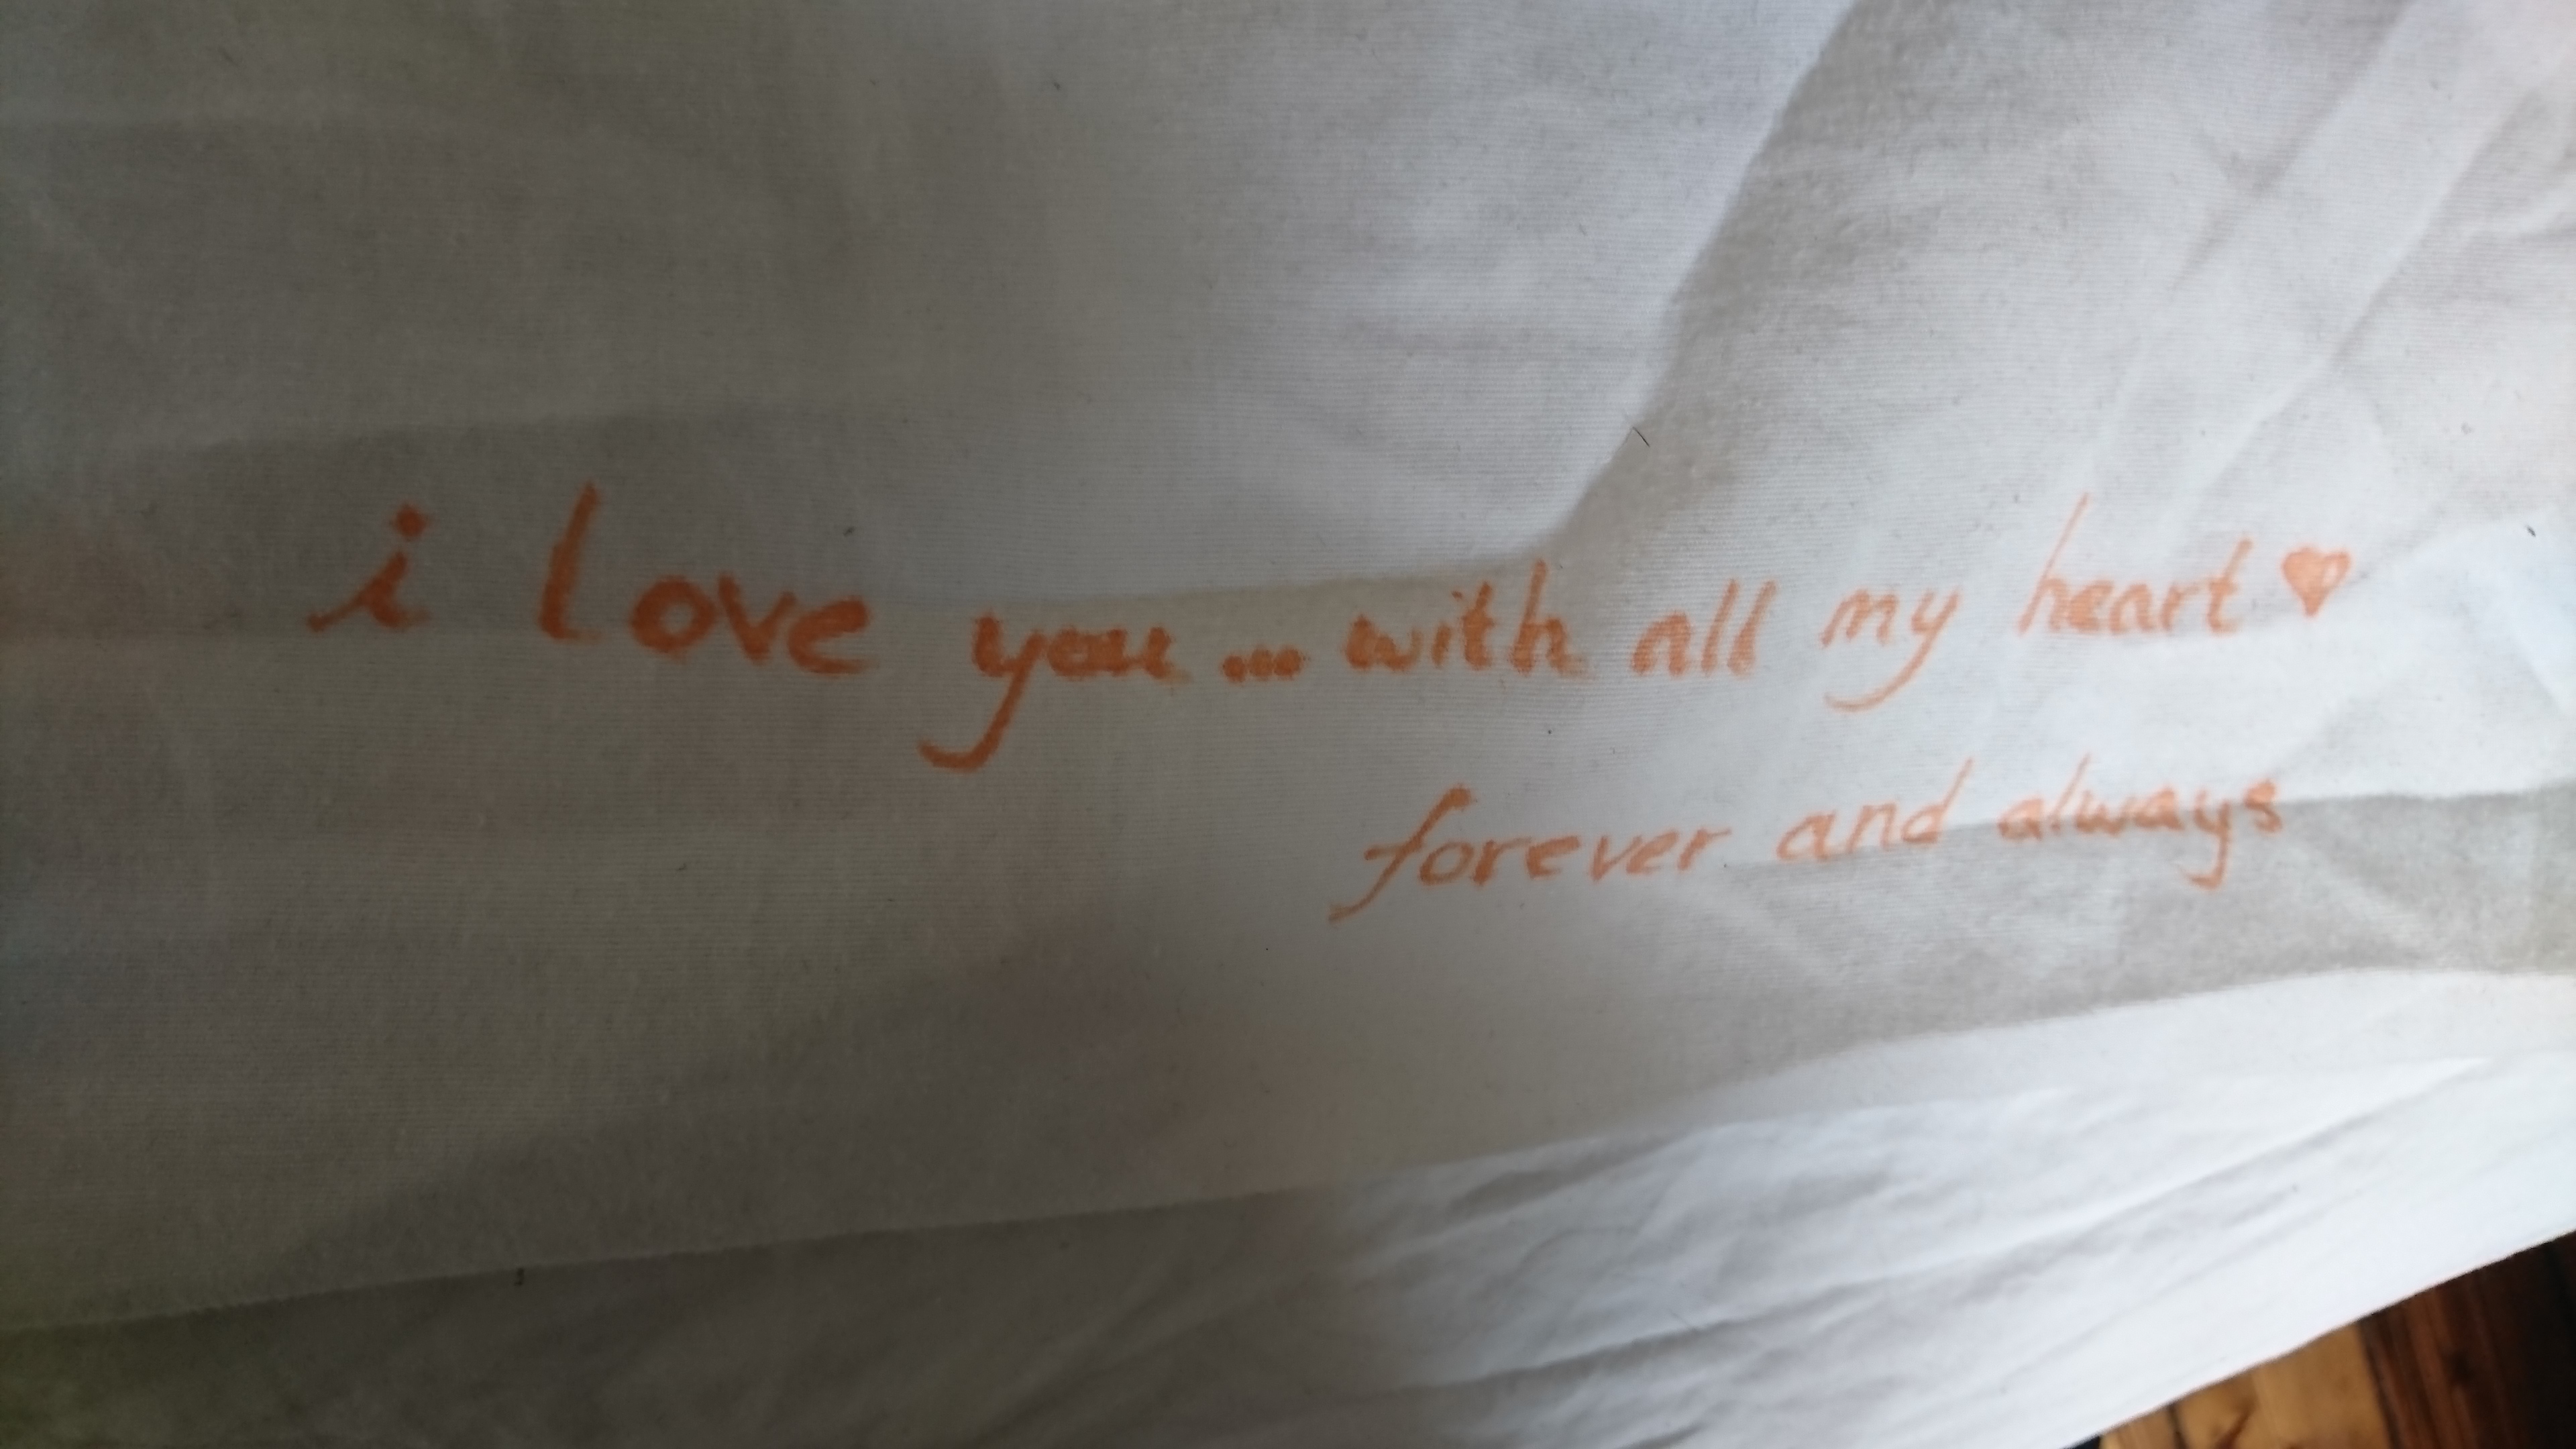 i love you ... with all my heart ♡
forever and always